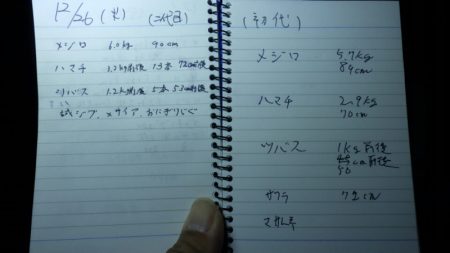 12/26 (火) (二代目)
メジロ 6.0kg 90cm
ハマチ 3.2kg前後 13本 72cm前後
ツバス 1.2kg前後 5本 52cm前後
ジグ、メタイア、おにぎりじぐ
(初代)
メジロ 5.7kg
89cm
ハマチ 2.9kg
70cm
ツバス 1kg前後
cm前後
50
サワラ 72cm